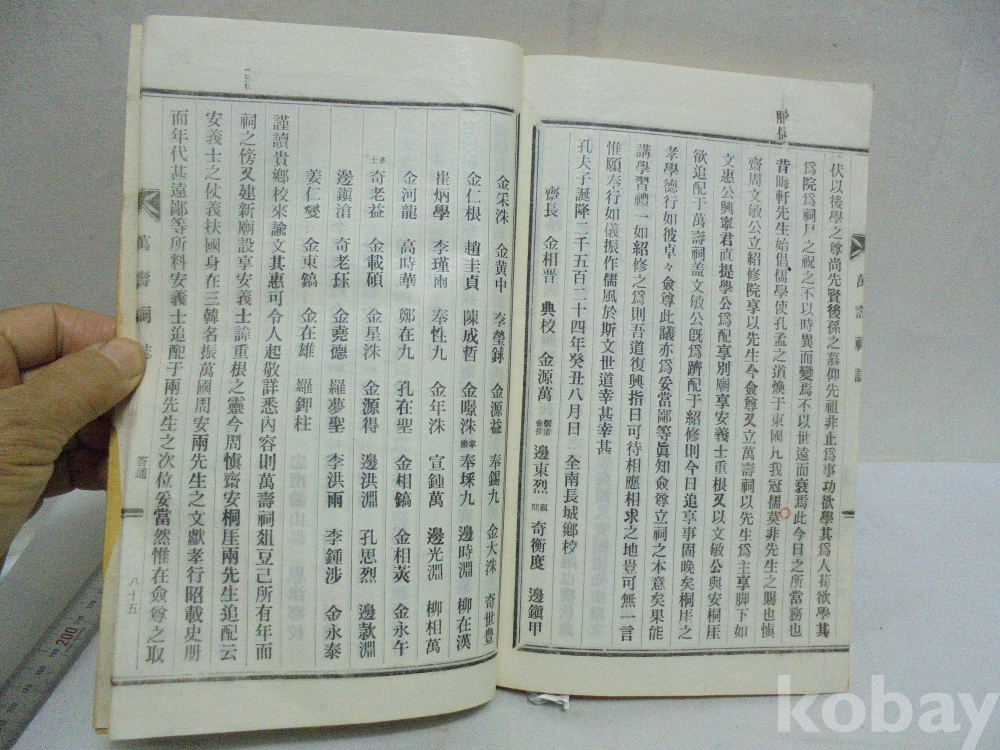 伏以後學之尊尚先賢後孫之慕仰先祖非止爲事功欲學其爲人苟欲學其
爲院爲祠尸之祝之不以時異而變焉不以世遠而衰焉此今日之所當務也
昔晦軒先生始倡儒學使孔孟之道煥于東國凡我冠儒莫非先生之賜也愼
齋周文敏公立紹修院享以先生今僉尊又立萬壽祠以先生爲主享脚下如
文惠公興寧君直提學公爲配享別廟享安義士重根又以文敏公與安桐厓
欲追配于萬壽祠盖文敏公旣爲躋配于紹修則今日追享事固晚矣桐厓之
孝學德行如彼卓々僉尊此議亦爲妥當鄙等眞知僉尊立祠之本意矣果能
講學習禮一如紹修之爲則吾道復興指日可待相應相求之地豈可無一言
惟願奉行如儀振作儒風於斯文世道幸甚幸甚
孔夫子誕降二千五百二十四年癸丑八月日 全南長城鄉校
齋長 金相晋 典校 金源萬 儒道會長 邊東烈 顧問 奇衡度 邊鎭甲
萬壽祠誌
金采洙 金黃中 李瑩錄 金源益 奉錫九 金大洙 奇世豊
金仁根 趙圭貞 陳成哲 金暻洙 掌議 奉埰九 邊時淵 柳在漢
崔炳學 李瑾雨 奉性九 金年洙 宣鍾萬 邊光淵 柳相萬
金河龍 高時華 鄭在九 孔在聖 金相鎬 金相英 金永午
多士 奇老益 金載碩 金星洙 金源得 邊洪淵 孔思烈 邊歎淵
邊鎭滄 奇老珏 金堯德 羅夢聖 李洪雨 李鍾涉 金永泰
姜仁燮 金東鎬 金在雄 羅鉀柱
謹讀貴鄉校來諭文其惠可令人起敬詳悉內容則萬壽祠俎豆己所有年而
祠之傍又建新廟設享安義士諱重根之靈今周愼齋安桐厓兩先生追配云
安義士之仗義扶國身在三韓名振萬國周安兩先生之文獻孝行昭載史册
而年代甚遠鄙等所料安義士追配于兩先生之次位妥當然惟在僉尊之取
萬壽祠誌 答通 八十五
kobay
200